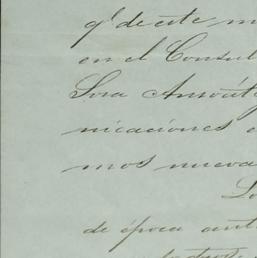 ql. de este m
en el Consul
Sora Ansoát
nicaciones e
mos nueva
Lo
de época ant